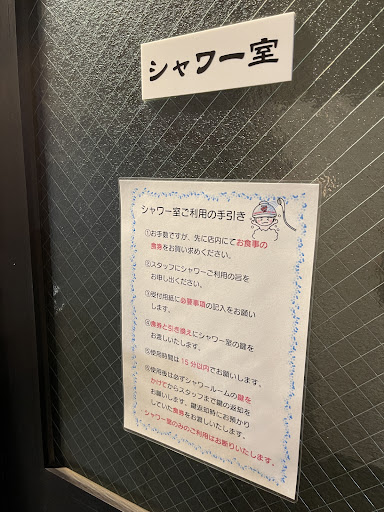 シャワー室
シャワー室ご利用の手引き
①お手数ですが、先に店内にてお食事の
食券をお買い求めください。
②スタッフにシャワーご利用の旨を
お申し出ください。
③受付用紙に必要事項の記入をお願い
します。
④食券と引き換えにシャワー室の鍵を
お渡しいたします。
⑤使用時間は15分以内でお願いします。
⑥使用後は必ずシャワールームの鍵を
かけてからスタッフまで鍵の返却を
お願いします。鍵返却時にお預かり
していた食券をお渡しいたします。
シャワー室のみのご利用はお断りいたします。